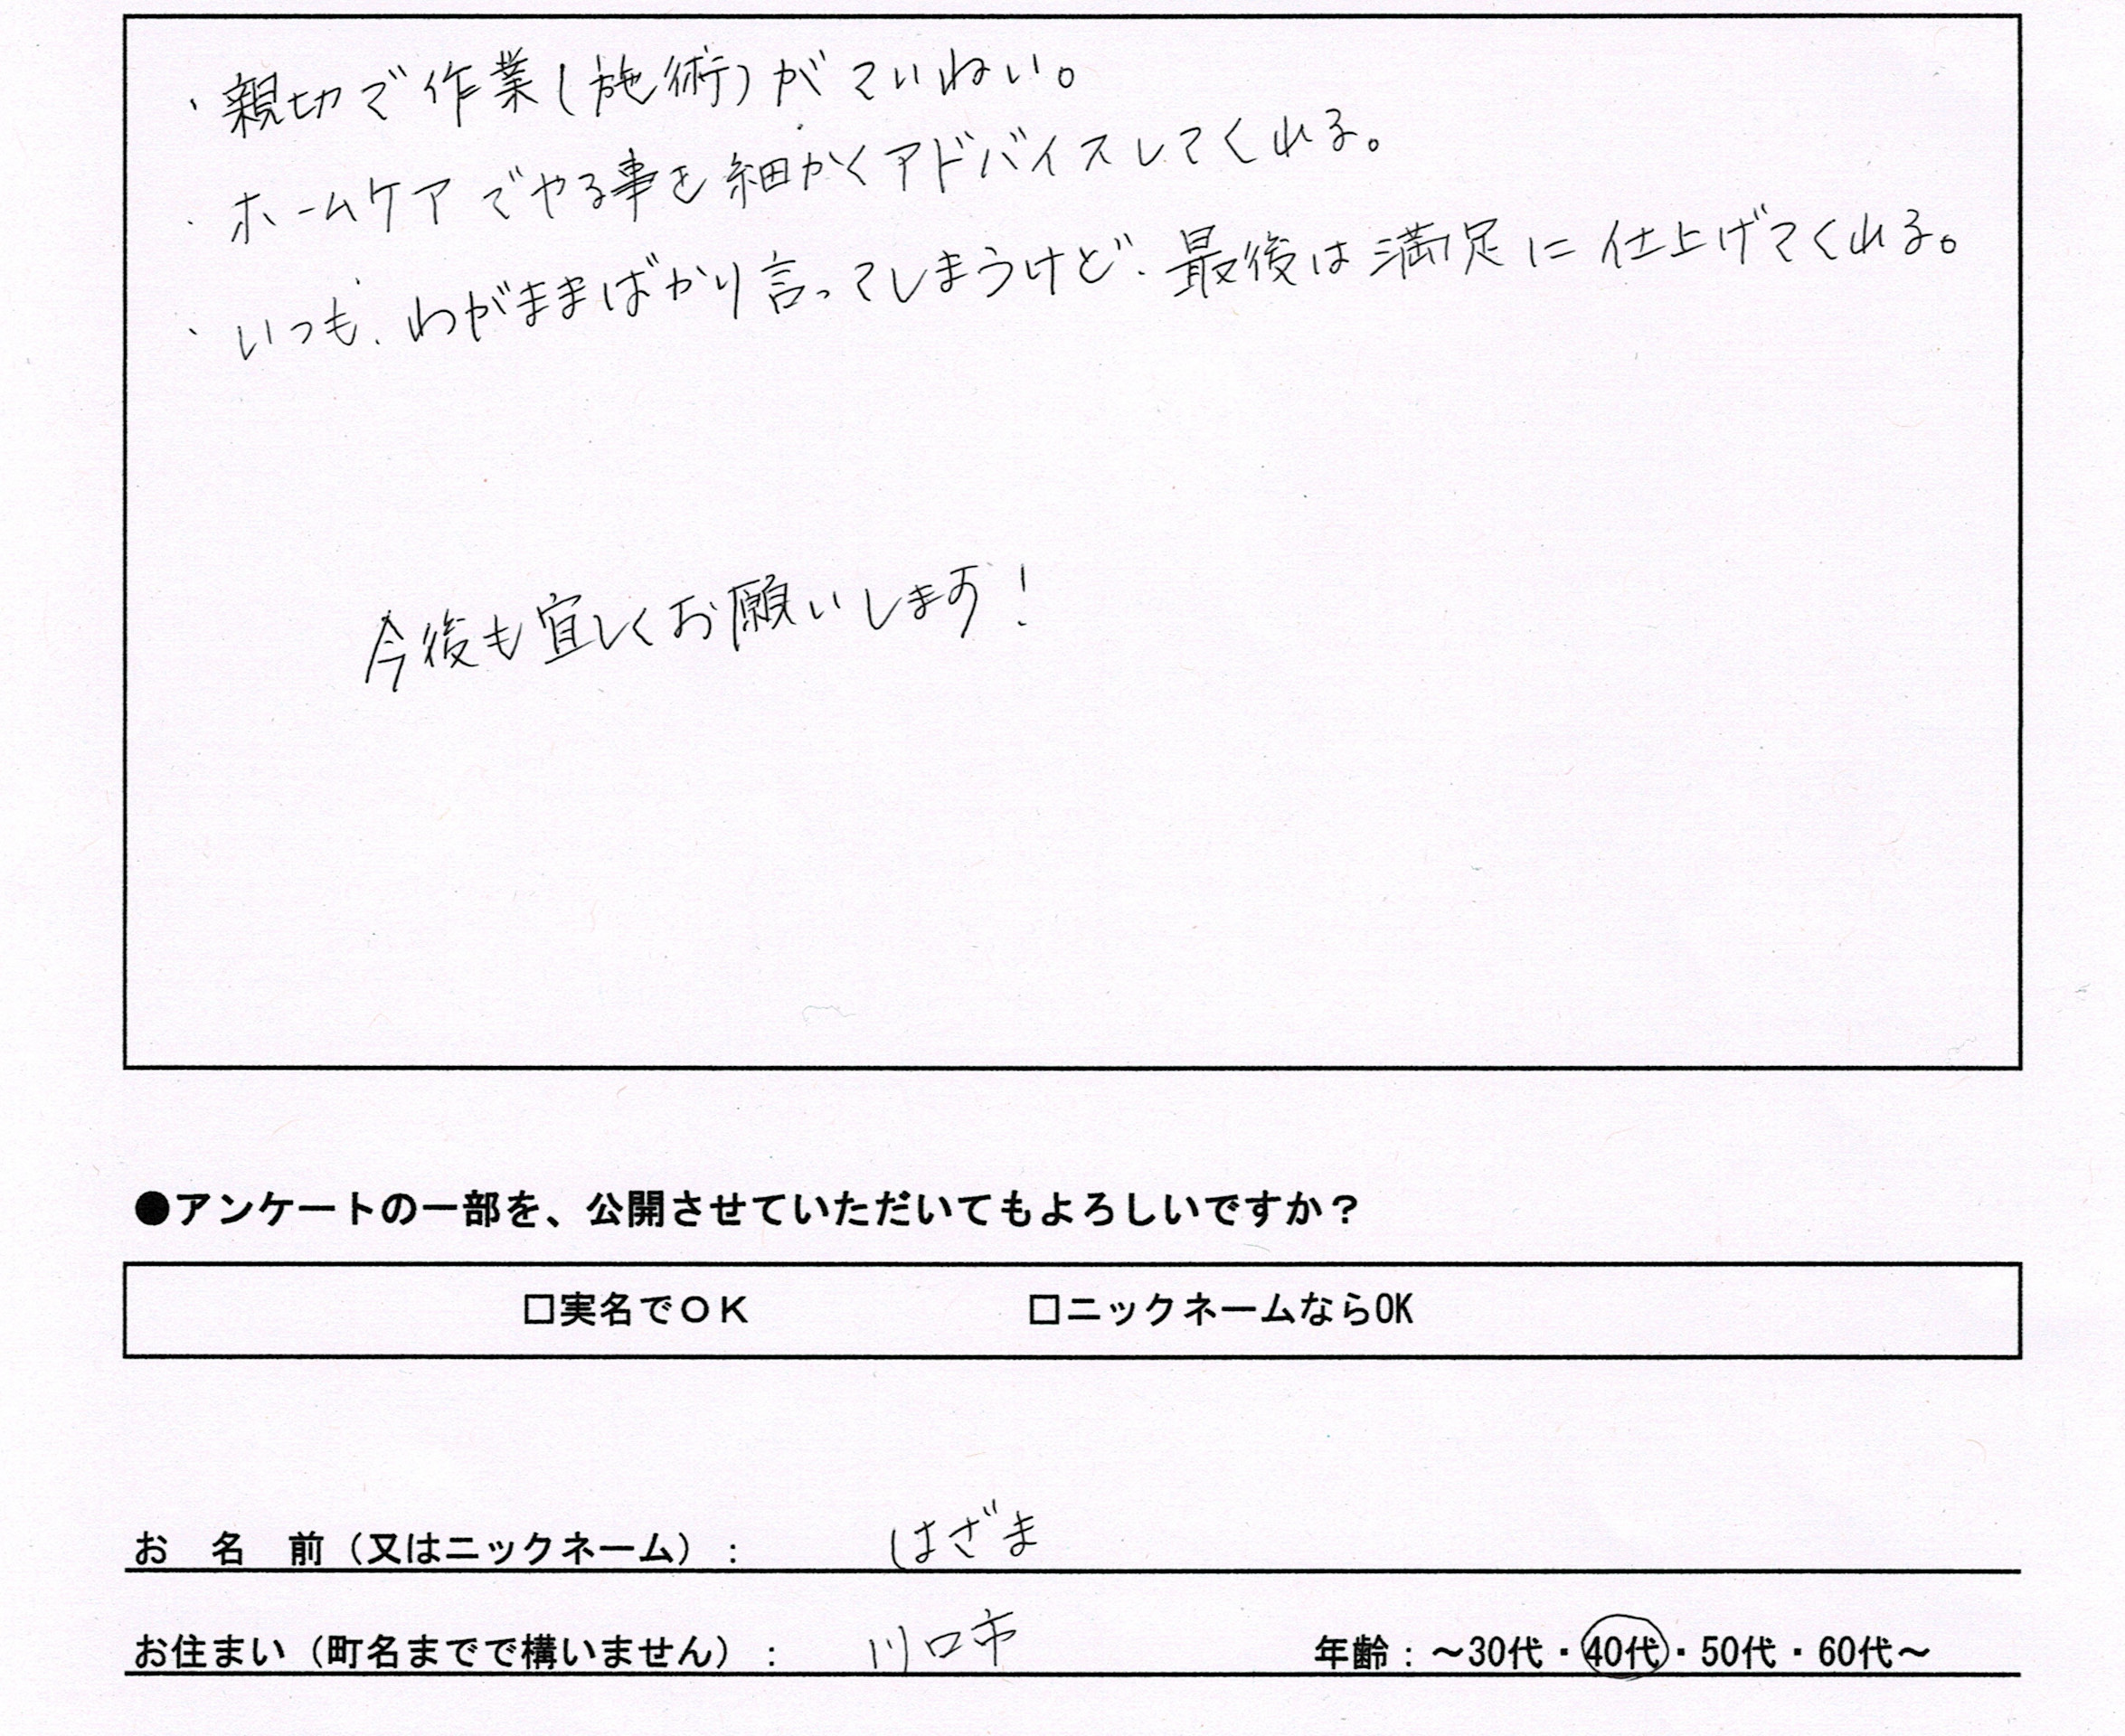 ・親切で作業(施術)がていねい。
・ホームケアでやる事を細かくアドバイスしてくれる。
・いつも、わがままばかり言ってしまうけど、最後は満足に仕上げてくれる。
今後も宜しくお願いします!
●アンケートの一部を、公開させていただいてもよろしいですか？
□実名でＯＫ □ニックネームならOK
お 名 前（又はニックネーム）: はざま
お住まい（町名までで構いません）: 川口市 年齢：～30代・40代・50代・60代～